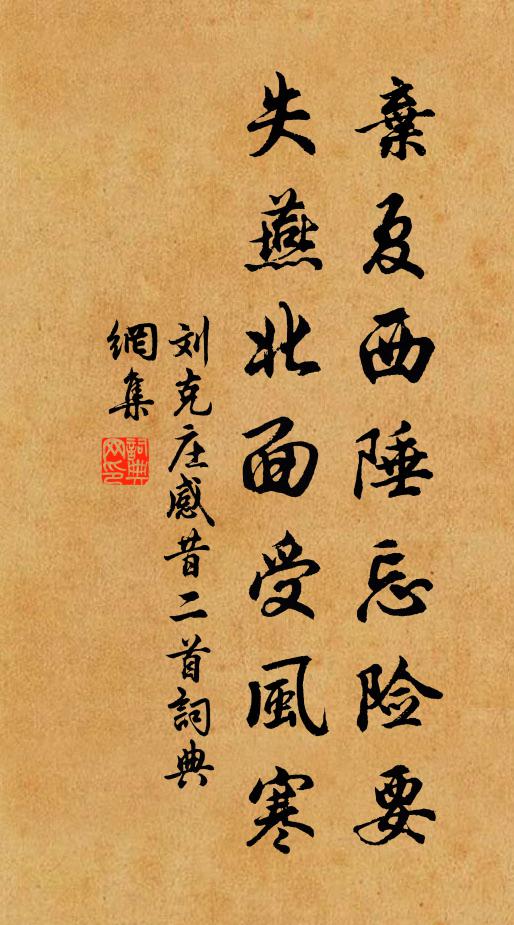 棄夏西陲忘险要
失燕北面受風寒
刘克庄感昔二首詞典
網集
詞典网印